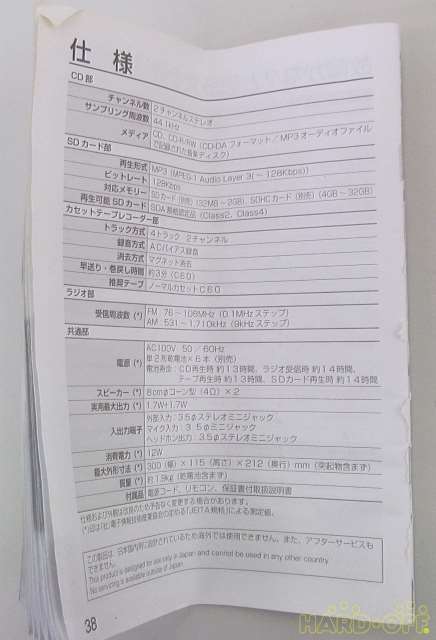 仕様
CD部
チャンネル数 2チャンネルステレオ
サンプリング周波数 44.1kHz
メディア CD、CD-R/RW (CD-DAフォーマット／MP3オーディオファイル
で記録された音楽ディスク)
SDカード部
再生形式 MP3 (MPEG-1 Audio Layer 3(～128Kbps))
ビットレート 128Kbps
対応メモリー SDカード(別売)(32MB～2GB)、SDHCカード(別売)(4GB～32GB)
再生可能SDカード SDA規格認定品 (Class2、Class4)
カセットテープレコーダー部
トラック方式 4トラック 2チャンネル
録音方式 ACバイアス録音
消去方式 マグネット消去
早送り・巻戻し時間 約3分(C60)
推奨テープ ノーマルカセットC60
ラジオ部
受信周波数(*) FM 76～108MHz (0.1MHzステップ)
AM 531～1,710kHz (9kHzステップ)
共通部
電源(*) AC100V 50／60Hz
単2形乾電池×6本(別売)
電池寿命：CD再生時 約13時間、ラジオ受信時 約14時間、
テープ再生時 約13時間、SDカード再生時 約14時間
スピーカー(*) 8cmφコーン型(4Ω)×2
実用最大出力(*) 1.7W+1.7W
入出力端子 外部入力：3.5φステレオミニジャック
マイク入力：3.5φミニジャック
ヘッドホン出力：3.5φステレオミニジャック
消費電力(*) 12W
最大外形寸法(*) 300(幅)×115(高さ)×212(奥行)mm(突起物含まず)
質量(*) 約1.9kg(乾電池含まず)
付属品 電源コード、リモコン、保証書付取扱説明書
仕様および外観は改良のため予告なく変更する場合があります。
(*)印は(社)電子情報技術産業協会の定める「JEITA規格」による測定値。
この製品は、日本国内用に設計されているため海外では使用できません。また、アフターサービスも
できません。
This product is designed for use only in Japan and cannot be used in any other country.
No servicing is available outside of Japan.
38
HARD-OFF